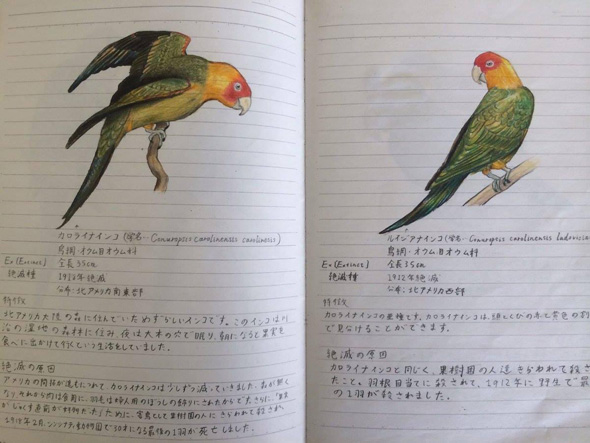 カロライナインコ (学名:Conuropsis carolinensis carolinesis)
鳥綱・オウム目オウム科
Ex (Extinct) 全長35cm
絶滅種 1918年絶滅
公布:北アメリカ南東部
特徴
北アメリカ大陸の森に住んでいためずらしいインコです。このインコは川
沿の湿地の森林に住み、夜は大木の穴で眠り、朝になると果実を
食べに出かけて行くという生活をしていました。
絶滅の原因
アメリカの開拓が進むにつれて、カロライナインコは少しずつ減っていきました。
なり、それから肉は食用に、羽毛は婦人用のぼうしの飾りにされたからです。さらに、
ために、害鳥として果樹園の人にきらわれて殺され、
1918年2月、シンシナティ動物園で 最後の1羽が死亡しました。
ルイジアナインコ (学名:Conuropsis carolinensis ludovicia
鳥綱・オウム目オウム科
Ex (Extinct) 全長35cm
絶滅種 1912年絶滅
公布:北アメリカ西部
特徴
カロライナインコの亜種です。カロライナインコは、頭とくびの赤と黄色の
で見分けることができます。
絶滅の原因
カロライナインコと同じく、果樹園の人達きらわれて殺さ
たこと。羽根目当てに殺されて、1912年に野生で最
の1羽が殺されました。